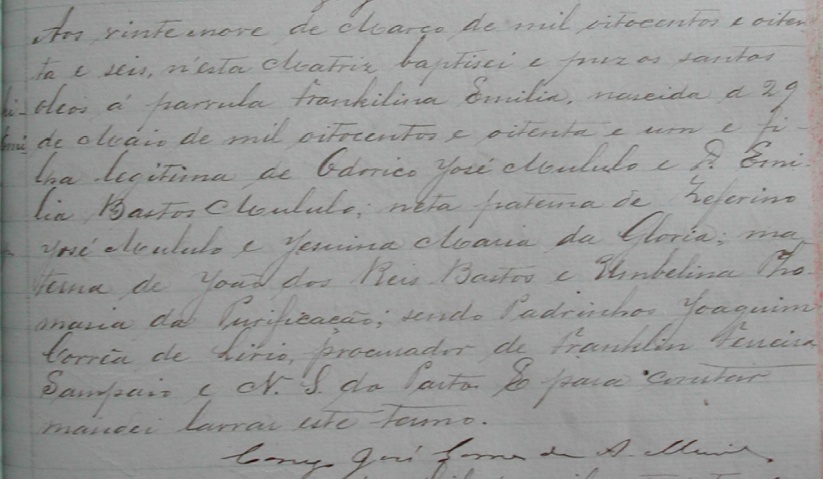 Aos vinte enove de Março de mil oitocentos e oiten
ta e seis, n'esta Matriz baptisei e puz os santos
oleos á parvula Frankilina Emilia, nascida a 29
de Maio de mil oitocentos e oitenta e um e fi-
lha legitima de Odorico José Mululo e D. Emi-
lia Bastos Mululo; neta paterna de Zeferino
José Mululo e Jesuina Maria da Gloria; ma
terna de João dos Reis Bastos e Umbelina Tho-
masia da Purificação; sendo Padrinhos Joaquim
Corrêa de Lirio, procurador de Franklin Ferreira
Sampaio e N. S. do Parto. E para constar
mandei lavrar este termo.
José Gomes de A.